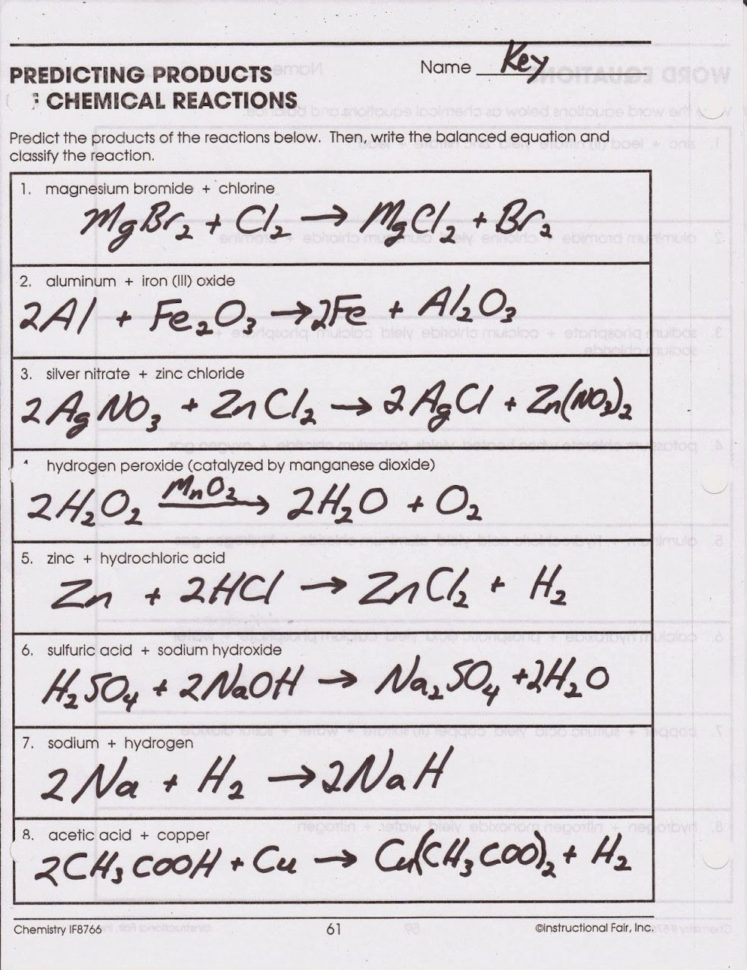 Name Key
PREDICTING PRODUCTS
CHEMICAL REACTIONS
Predict the products of the reactions below. Then, write the balanced equation and
classify the reaction.
1. magnesium bromide + chlorine
MgBr₂ + Cl₂ → MgCl₂ + Br₂
2. aluminum + iron (III) oxide
2Al + Fe₂O₃ → 2Fe + Al₂O₃
3. silver nitrate + zinc chloride
2AgNO₃ + ZnCl₂ → 2AgCl + Zn(NO₃)₂
hydrogen peroxide (catalyzed by manganese dioxide)
2H₂O₂ MnO₂→ 2H₂O + O₂
5. zinc + hydrochloric acid
Zn + 2HCl → ZnCl₂ + H₂
6. sulfuric acid + sodium hydroxide
H₂SO₄ + 2NaOH → Na₂SO₄ + 2H₂O
7. sodium + hydrogen
2Na + H₂ → 2NaH
8. acetic acid + copper
2CH₃COOH + Cu → Cu(CH₃COO)₂ + H₂
Chemistry IF8766 61 ©Instructional Fair, Inc.